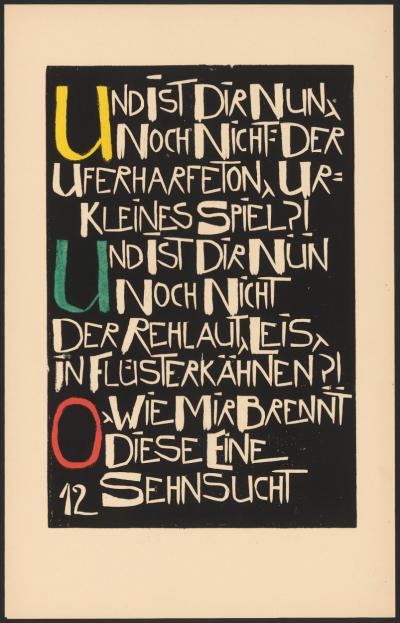 UND IST DIR NUN,
NOCH NICHT DER
UFERHARFETON, UR=
KLEINES SPIEL?!
UND IST DIR NUN
NOCH NICHT
DER REHLAUT, LEIS,
IN FLÜSTERKÄHNEN?!
O, WIE MIR BRENNT
DIESE EINE
12 SEHNSUCHT